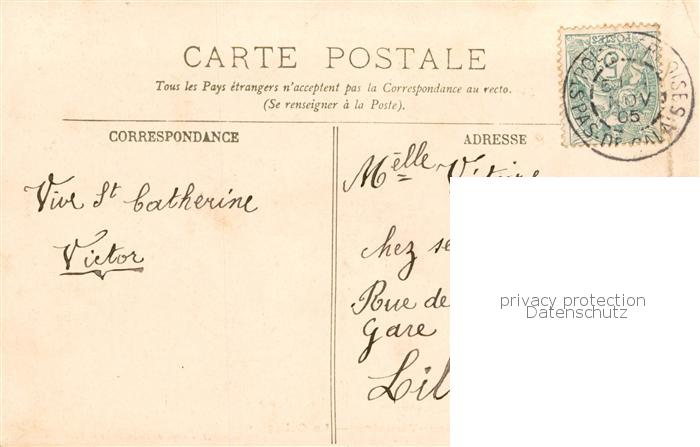 CARTE POSTALE
Tous les Pays étrangers n'acceptent pas la Correspondance au recto.
(Se renseigner à la Poste).
CORRESPONDANCE
Vive St Catherine
Victor
ADRESSE
Melle
chez
Rue de
Gare
Lil
POSTES
5
PAS-DE-CALAIS
05
privacy protection
Datenschutz